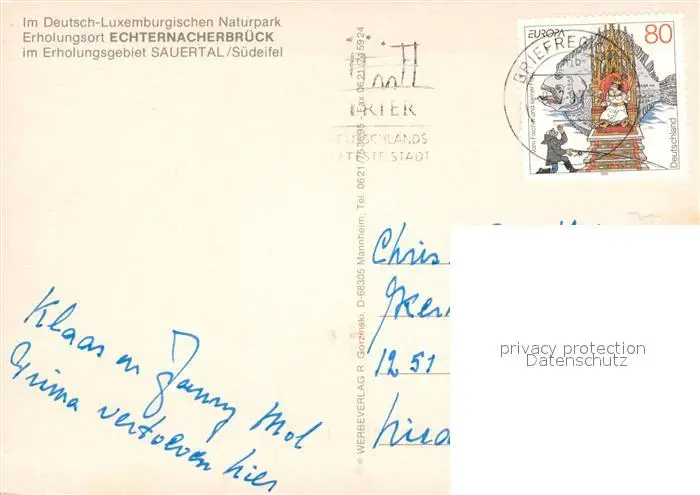 Im Deutsch-Luxemburgischen Naturpark
Erholungsort ECHTERNACHERBRÜCK
im Erholungsgebiet SAUERTAL/Südeifel
EUROPA
80
Deutschland
BRIEFREG
TRIER
DEUTSCHLANDS
ÄLTESTE STADT
© WERBEVERLAG R. Gorzinski, D-68305 Mannheim, Tel. 06 21/75 36 95 - Fax 06 21/74 59 24
Klaas en Janny Mol
Prima vertoeven hier
Chris
1251
privacy protection
Datenschutz